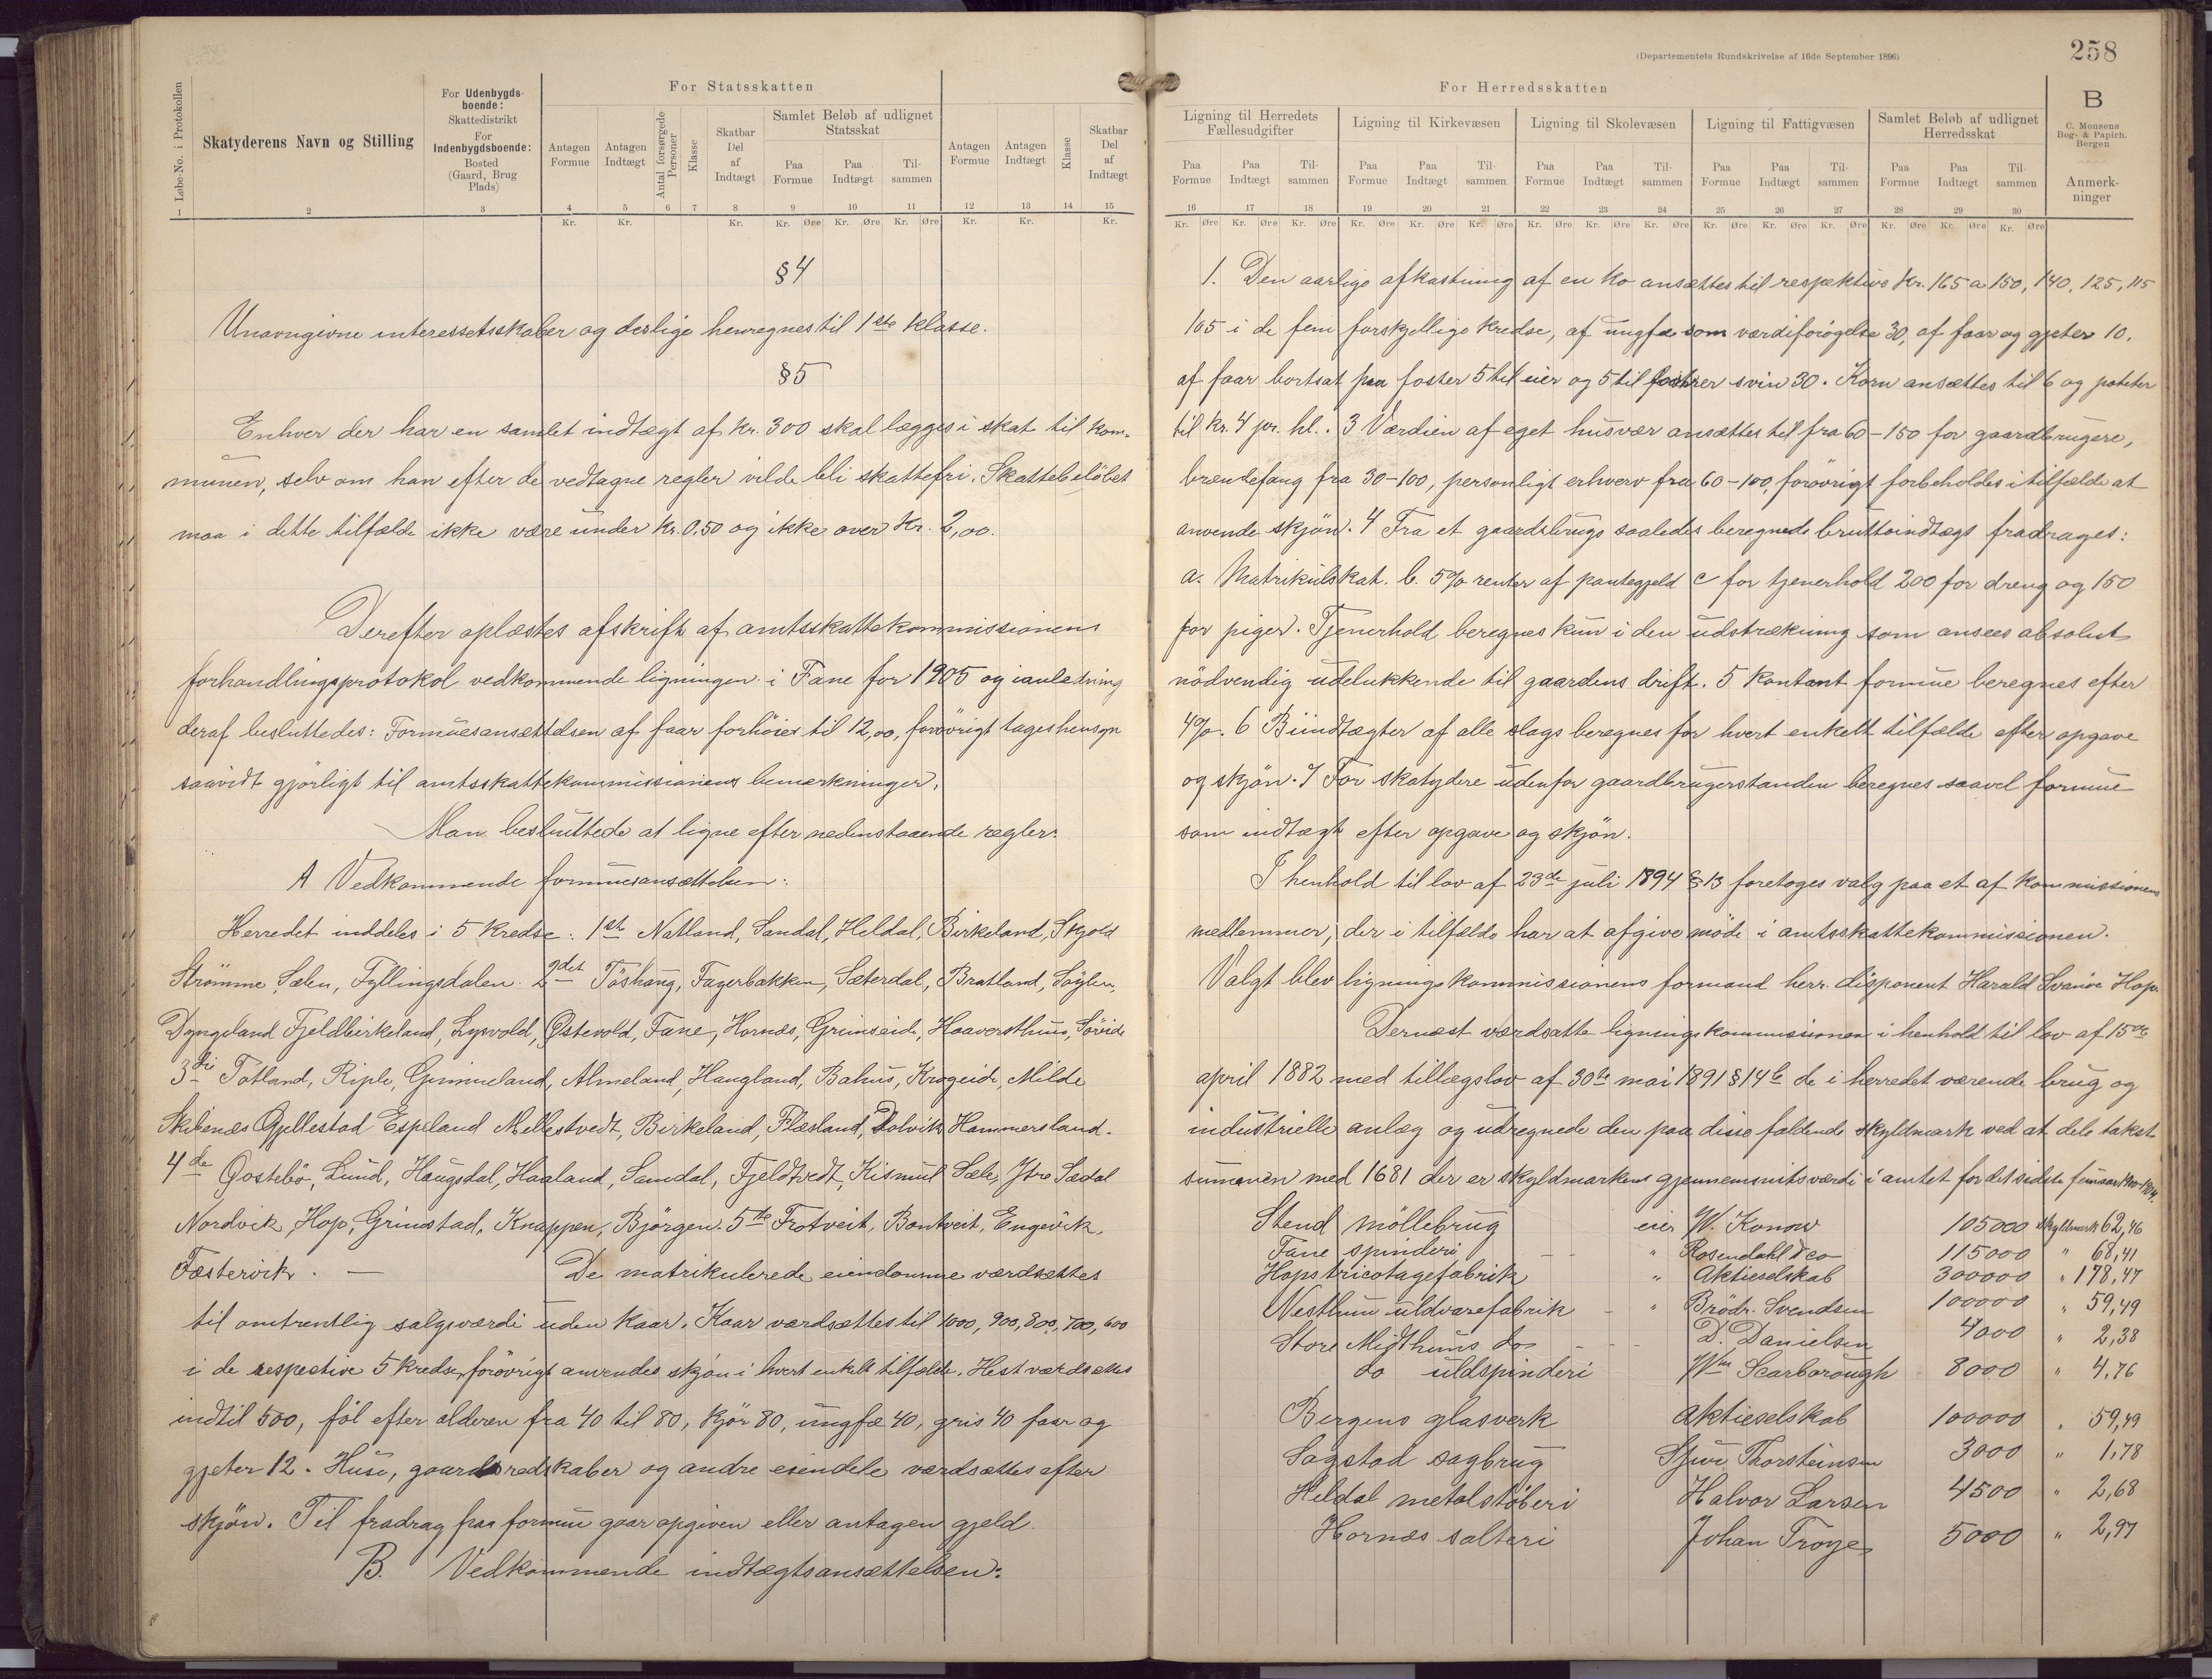 For Statsskatten
Løbe-No. i Protokollen
Skatyderens Navn og Stilling
For Udenbygds-
boende:
Skattedistrikt
For
Indenbygdsboende:
Bosted
(Gaard, Brug
Plads)
Antagen
Formue
Antagen
Indtægt
Antal forsørgede
Personer
Klasse
Skatbar
Del
af
Indtægt
Samlet Beløb af udlignet
Statsskat
Paa
Formue
Paa
Indtægt
Til-
sammen
Antagen
Formue
Antagen
Indtægt
Klasse
Skatbar
Del
af
Indtægt
1 2 3 4 5 6 7 8 9 10 11 12 13 14 15
Kr. Kr. Kr. Kr. Øre Kr. Øre Kr. Øre Kr. Kr. Kr.
§ 4
Unavngivne interessetsskaber og deslige henregnes til 1ste klasse.
§ 5
Enhver der har en samlet indtægt af kr. 300 skal lægges i skat til kom-
munen, selv om han efter de vedtagne regler vilde bli skattefri. Skattebeløbet
maa i dette tilfælde ikke være under kr. 0,50 og ikke over kr. 2,00.
Derefter oplæstes afskrift af amtsskattekommissionens
forhandlingsprotokol vedkommende ligningen i Fane for 1905 og i anledning
deraf besluttedes: Formuesansættelsen af faar forhöies til 12,00, forövrigt tages hensyn
saavidt gjörligt til amtsskattekommissionens bemerkninger.
Man besluttede at ligne efter nedenstaaende regler:
A Vedkommende formuesansættelsen:
Herredet inddeles i 5 kredse: 1ste Natland, Sandal, Heldal, Birkeland, Skjold
Strömme Sælen, Fyllingsdalen. 2det Töshaug, Fagerbakken, Sæterdal, Bratland, Söylen,
Dyngeland Fjeldbirkeland, Lysvold, Østevold, Fane, Hornæs, Grimseid, Haaversthus, Sövide
3die Totland, Riple, Gimmeland, Almeland, Haugland, Bahus, Krogeide, Milde
Skibenæs Gjellestad Espeland Mellestvedt, Birkeland, Flæsland, Dolvik Hammersland.
4de Gostebö, Lund, Haugsdal, Haaland, Samdal, Fjeldtvedt, Kismul Sæle, Ytre Sædal
Nordvik, Hop, Grimstad, Knappen, Bjørgen. 5te Frotveit, Bontveit, Engevik,
Fæstervik. — De matrikulerede eiendomme værdsættes
til omtrentlig salgsværdi uden kaar. Kaar værdsættes til 1000, 900, 800, 700, 600
i de respective 5 kredse, forövrigt anvendes skjön i hvert enkelt tilfælde. Hest værdsættes
indtil 500, föl efter alderen fra 40 til 80, kjör 80, ungfæ 40, gris 40 faar og
gjeter 12. Huse, gaardsredskaber og andre eiendele værdsættes efter
skjön. Til fradrag paa formue gaar opgiven eller antagen gjeld.
B. Vedkommende indtægtsansættelsen:
(Departementets Rundskrivelse af 16de September 1896)
258
For Herredsskatten
B
C. Monsens
Bog- & Papirh.
Bergen
Ligning til Herredets
Fællesudgifter
Ligning til Kirkevæsen
Ligning til Skolevæsen
Ligning til Fattigvæsen
Samlet Beløb af udlignet
Herredsskat
Paa
Formue
Paa
Indtægt
Til-
sammen
Paa
Formue
Paa
Indtægt
Til-
sammen
Paa
Formue
Paa
Indtægt
Til-
sammen
Paa
Formue
Paa
Indtægt
Til-
sammen
Paa
Formue
Paa
Indtægt
Til
sammen
Anmerk-
ninger
16 17 18 19 20 21 22 23 24 25 26 27 28 29 30
Kr. Øre Kr. Øre Kr. Øre Kr. Øre Kr. Øre Kr. Øre Kr. Øre Kr. Øre Kr. Øre Kr. Øre Kr. Øre Kr. Øre Kr. Øre Kr. Øre Kr. Øre
1. Den aarlige afkastning af en ko ansættes til respektive kr. 165 a 150, 140, 125, 115
105 i de fem forskjellige kredse, af ungfæ som værdiforøgelse 30, af faar og gjeter 10.
af faar bortsat paa foster 5 til eier og 5 til fostrer svin 30. Korn ansættes til 6 og poteter
til kr. 4 pr. hl.. 3 Værdien af eget husvær ansættes til fra 60 – 150 for gaardbrugere,
brændefang fra 30-100, personligt erhverv fra 60 – 100, forövrigt forbeholdes i tilfælde at
anvende skjön. 4 Fra et gaardsbrugs saaledes beregnede bruttoindtægt fradrages:
a. Matrikulskat. b. 5% renter af pantegjeld c for tjenerhold 200 for dreng og 150
for piger. Tjenerhold beregnes kun i den udstrækning som ansees absolut
nödvendig udelukkende til gaardens drift. 5 Kontant formue beregnes efter
4%. 6 Biindtægter af alle slags beregnes for hvert enkelt tilfælde efter opgave
og skjön. 7 For skatydere udenfor gaardbrugerstanden beregnes saavel formue
som indtægt efter opgave og skjön.
I henhold til lov af 23de juli 1894 § 13 foretoges valg paa et af kommissionens
medlemmer, der i tilfælde har at afgive möde i amtsskattekommissionen.
Valgt blev ligningskommissionens formand herr. disponent Harald Svanöe Hop.
Dernæst værdsatte ligningskommissionen i henhold til lov af 15de
april 1882 med tillægslov af 30te mai 1891 § 14 b de i herredet værende brug og
industrielle anlæg og udregnede den paa disse faldende skyldmark ved at dele takst-
summen med 1681 der er skyldmarkens gjennemsnitsværdi i amtet for det sidste femaar 1900-1904.
Stend möllebrug eier W. Konow 105000 skyldmark 62,46
Fane spinderi - - " Rosendahl & co 115000 " 68,41
Hops tricotagefabrik " Aktieselskab 300000 " 178,47
Nesthun uldvarefabrik - " Brödr. Svendsen 100000 " 59,49
Store Midthuns do - - - D. Danielsen 4000 " 2,38
do uldspinderi Wm Scarborough 8000 " 4,76
Bergens glasverk Aktieselskab 100000 " 59,49
Sagstad sagbrug Thorsteinsen 3000 " 1,78
Heldal metalstöberi Halvor Larsen 4500 " 2,68
Hornæs salteri Johan Troye 5000 " 2,97